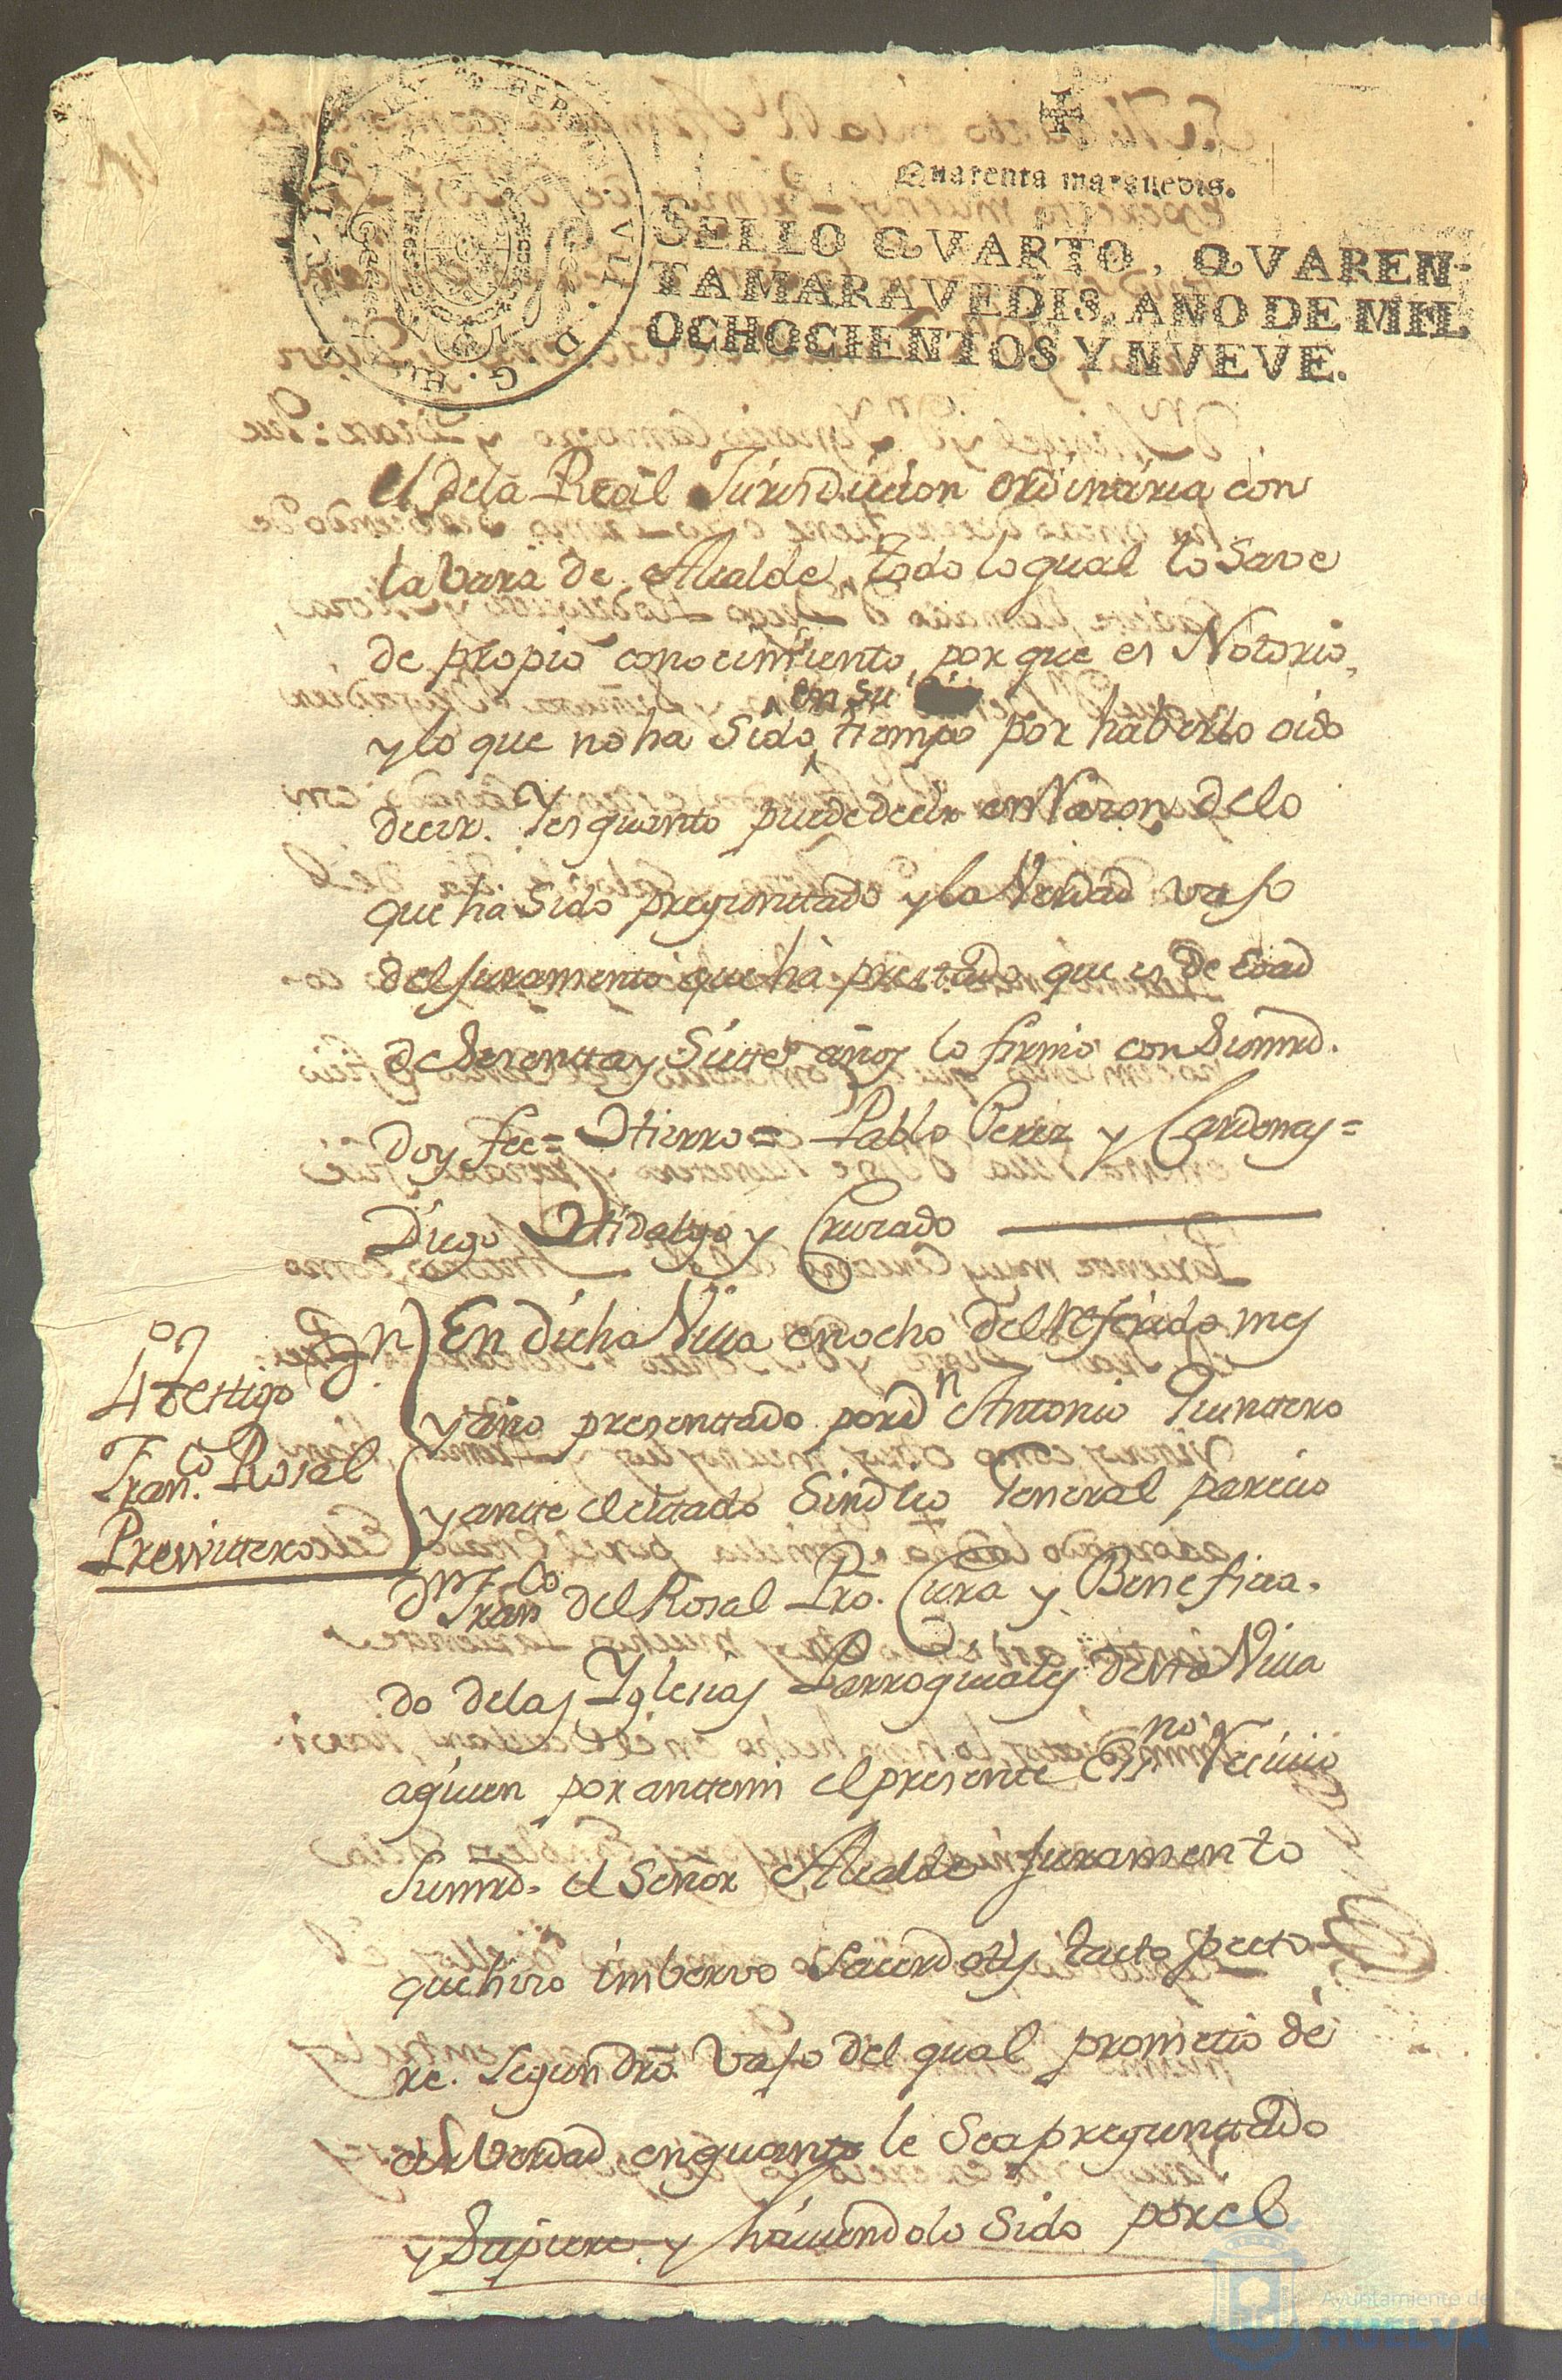 Quarenta maravedis.
SELLO QVARTO, QVAREN-
TAMARAVEDIS, AÑO DE MIL
OCHOCIENTOS Y NVEVE.
el dela Real Jurisdiccion ordinaria con
la vara de Alcalde, todo lo qual lo Save
de propio conocimiento, por que es Notorio,
en su
y lo que no ha Sido, tiempo por haberlo oido
decir. Y es quanto puede decir en Razon delo
que ha Sido preguntado y la Verdad vajo
del juramento que ha prestado, que es de edad
de Setenta y Siete años lo firmó con Sumrd.
doy fee = Hierro = Pablo Perez y Cardenas =
Diego Hidalgo y Cruzado
4º testigo Dn
Franco. Rosal
Presvittero
En dicha Villa en ocho del referido mes
y año presentado por dn Antonio Quintero
y ante el citado Sindico General parecio
dn Franco del Rosal Pro. Cura y Beneficia.
do delas Yglesias Parroquiales desta Villa
aquien por antemi el presente Essno Recivio
Sumrd. el Señor Alcalde juramento
que hizo imbervo Sacerdotis tacto pecto-
re. Segun dro. vajo del qual prometio de
cir verdad en quanto le Sea preguntado
y Supiere, y haviendolo Sido por el
Ayuntamiento de
HUELVA